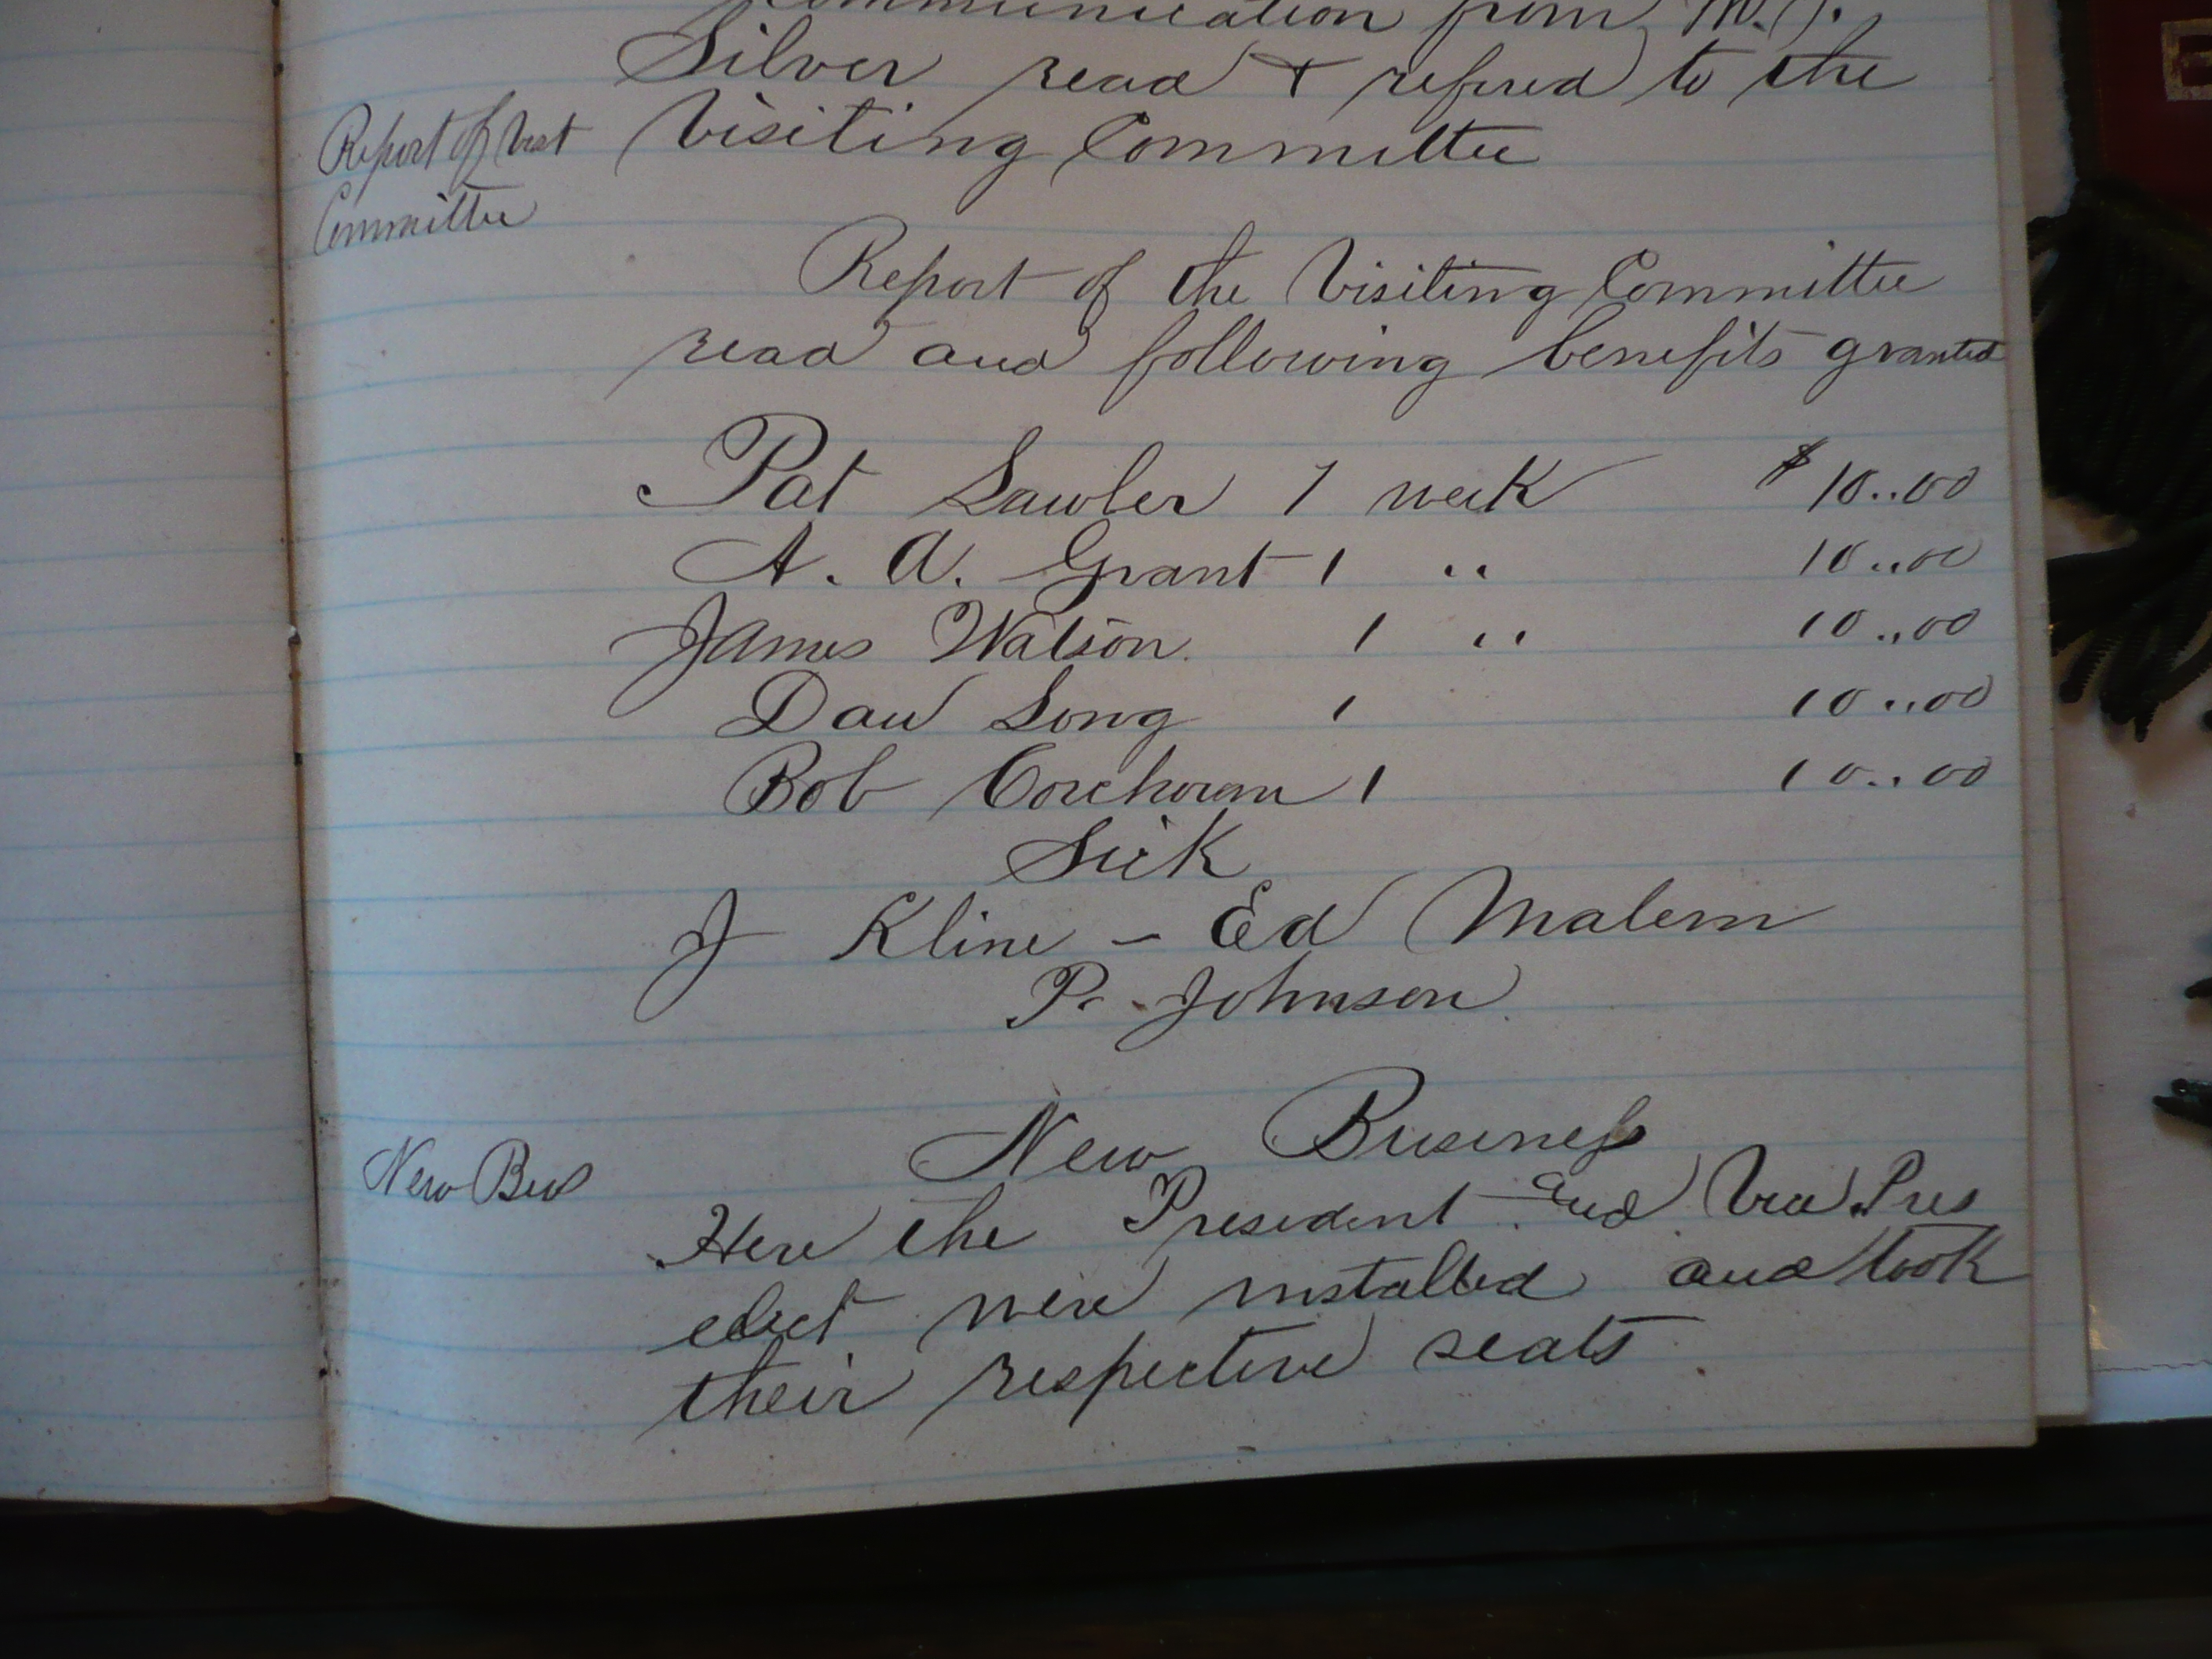 Communication from M. J.
Silver read & refered to the
Visiting Committee
Report of Visit
Committee
Report of the Visiting Committee
read and following benefits granted
Pat Lawler 1 week $10..00
A. A. Grant 1 " 10..00
James Watson 1 " 10..00
Dan Long 1 10..00
Bob Corchoran 1 10..00
Sick
J Kline - Ed Malem
P. Johnson
New Business
New Bus
Here the President and Vice Pres
elect were installed and took
their respective seats